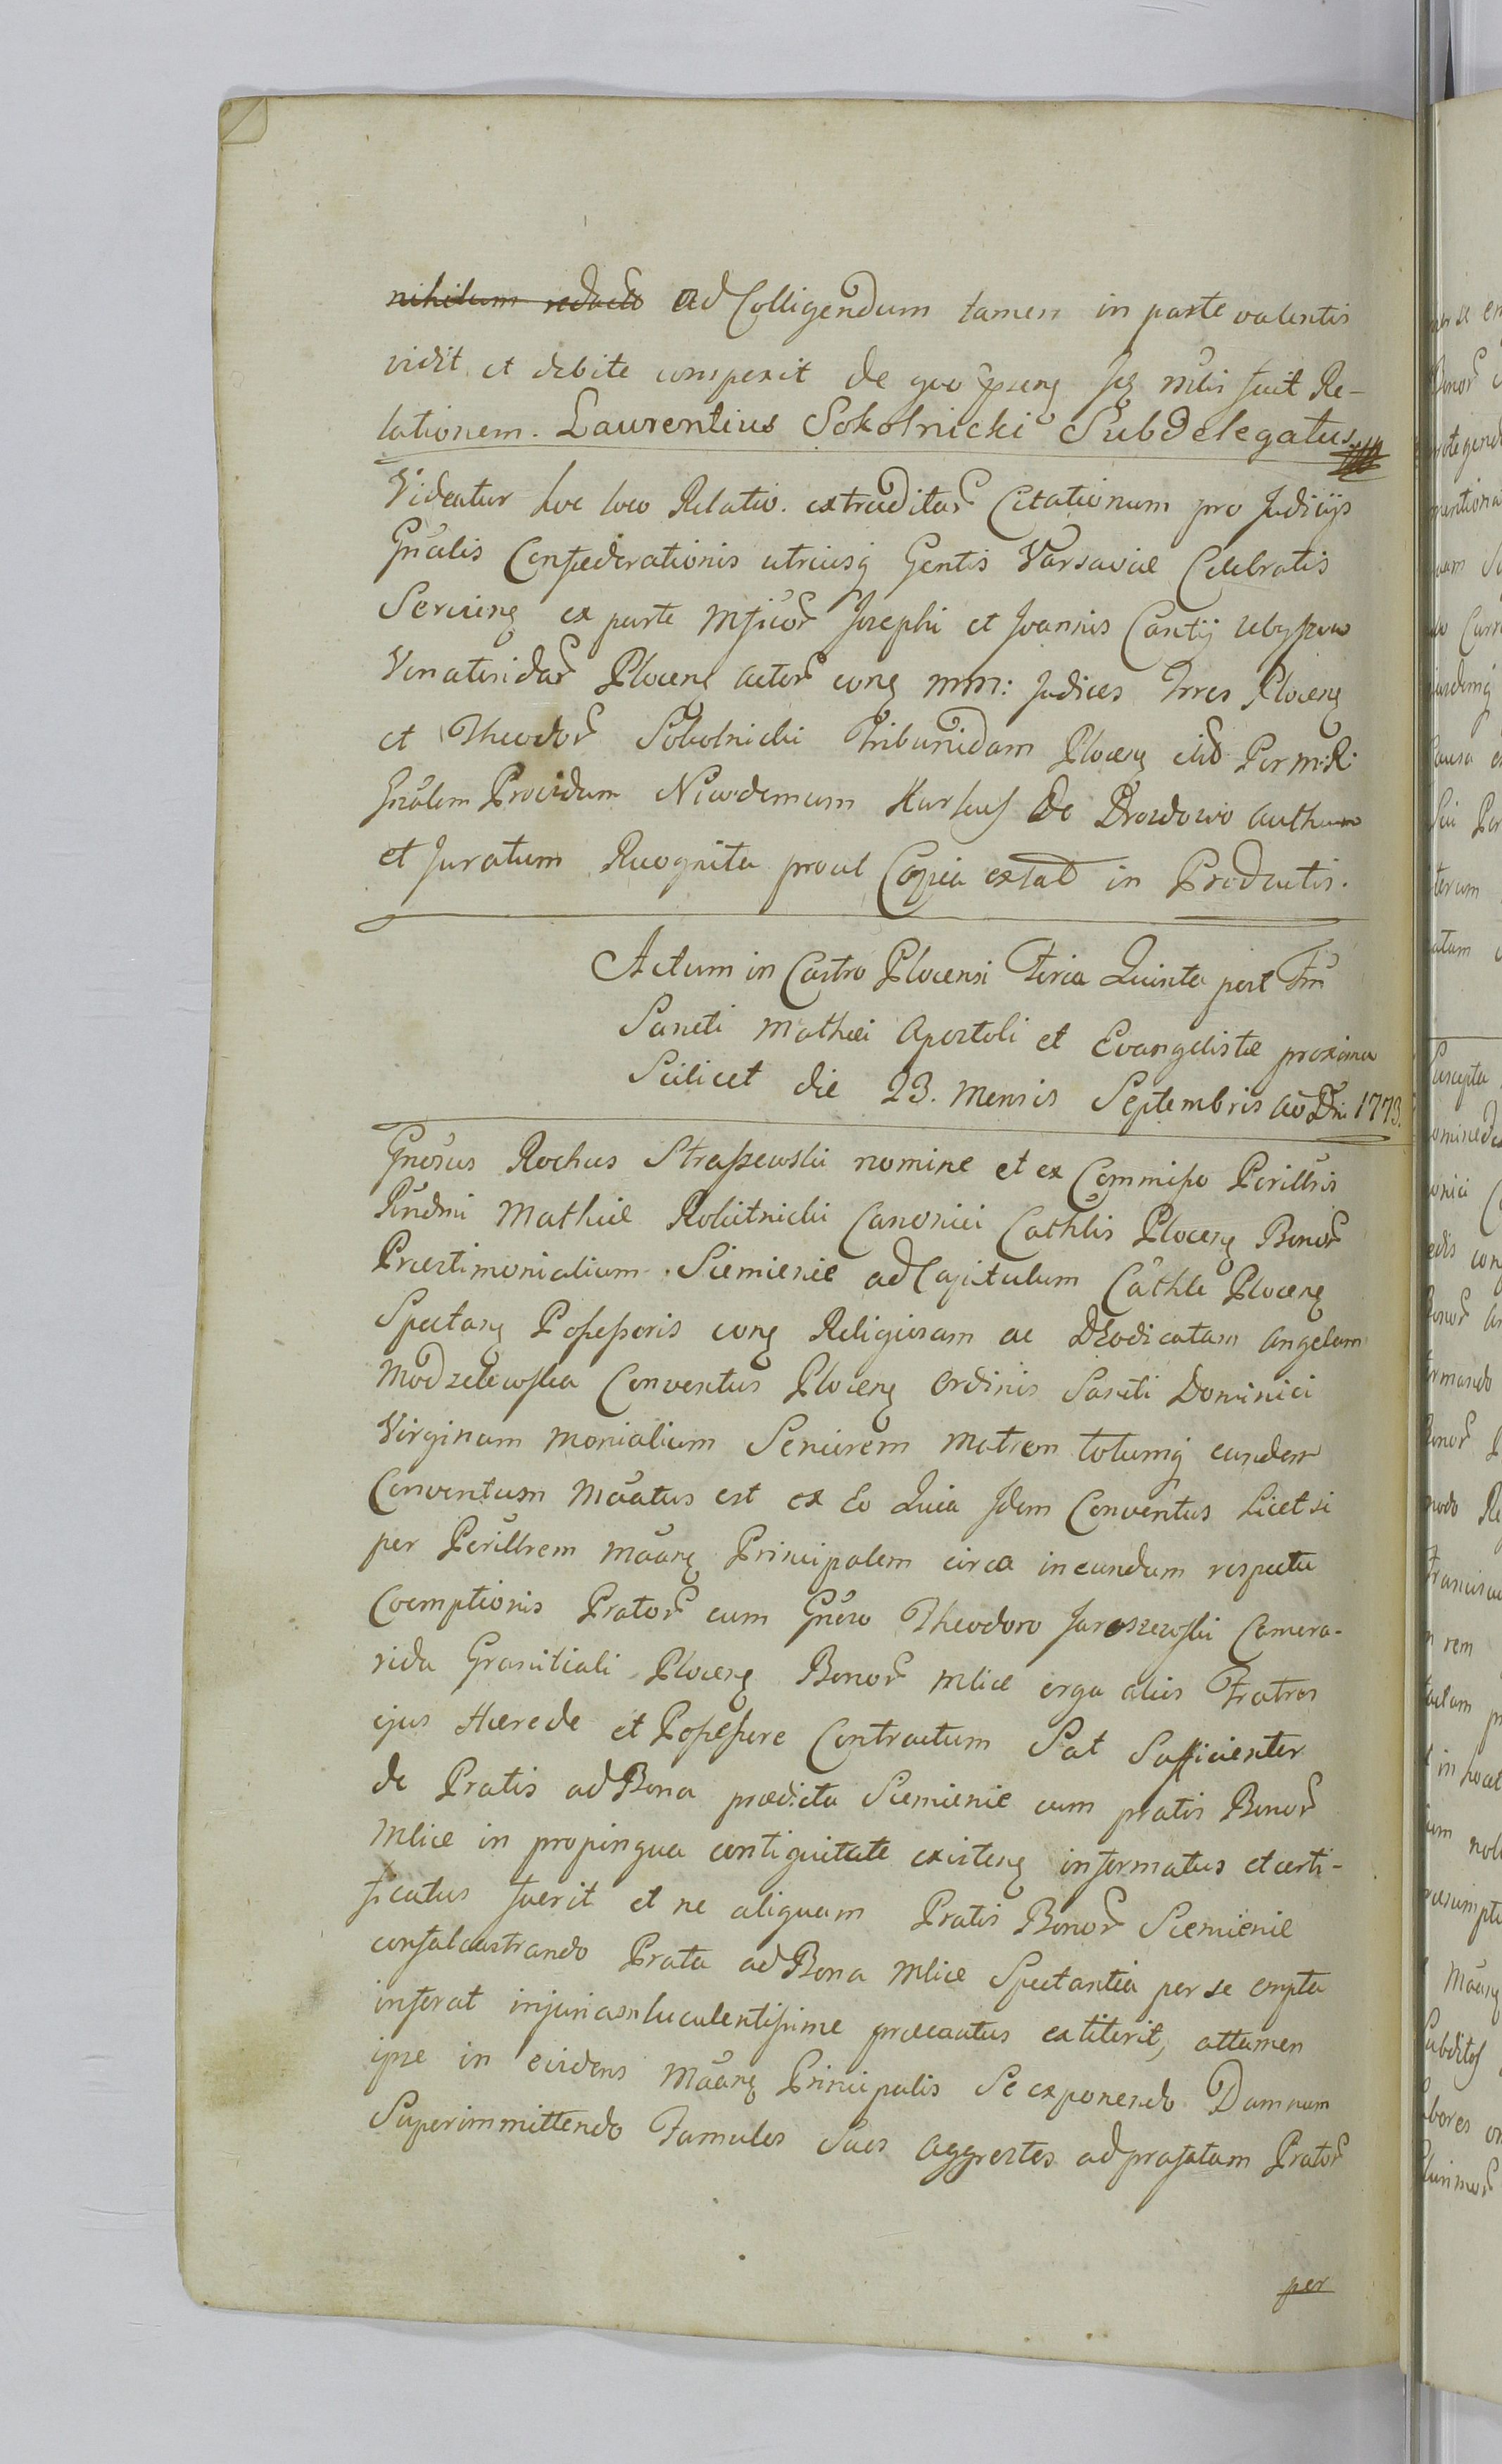 nihilum redacto ad Colligendum tamen in parte valentis
vidit et debite comperit de quo ipseng suit Re-
lationem. Laurentius Sokolnicki Subdelegatus
Videatur hoc loco Relatio. extraditar Citationum pro Judicijs
Gnalis Confæderationis utriusq Gentis Varsaviæ Celebratis
Servieng ex parte Mficor Josephi et Joannis Cantij
Venatoridar Ploceng actor cong MM: Judices Trres Ploceng
et Theodor Sokolnicki Tribunidam Ploceng Per M: R:
Gnalem Providum Nicodemum de Drozdowo Authum
et Juratum Recognita prout Copia extat in Productis.
Actum in Castro Plocensi Feria Quinta post Fm
Sancti Mathæi Apostoli et Evangelistæ proxima
Scilicet die 23. Mensis Septembris Ao Dni 1773.
Gnosus Rochus Straszewski nomine et ex Commisso Perillris
Rndmi Mathiæ Rokitnicki Canonici Cathlis Ploceng Bonor
Præstimonialium Siemienie ad Capitulum Cathle Ploceng
Spectang Possessoris cong Religiosam ac Dzodicatam Angelam
Modzelewska Conventus Ploceng Ordinis Sancti Dominici
Virginum Monialium Seniorem Matrem totumq eundem
Conventum Maatus est ex Eo Quia Idem Conventus Licet si
per Perillrem Maang Principalem circa ineundum respectu
Coemptionis Prator cum Gnoso Theodoro Jaroszewski Camera-
rida Granitiali Ploceng Bonor Mlice erga alios Fratres
ejus Hærede et Possessore Contractum Sat Sufficienter
de Pratis ad Bona prædicta Siemienie cum pratis Bonor
Mlice in propinqua contiguitate existeng informatus et certi-
ficatus fuerit et ne aliquam Pratis Bonor Siemienie
confalcastrando Prata ad Bona Mlice Spectantia per se empta
inferat injuriam luculentissime præcautus extiterit, attamen
ipse in evidens Maang Principalis Se exponendo Damnum
Superimmittendo Famulos Suos aggrestes ad prafatam Prator
per